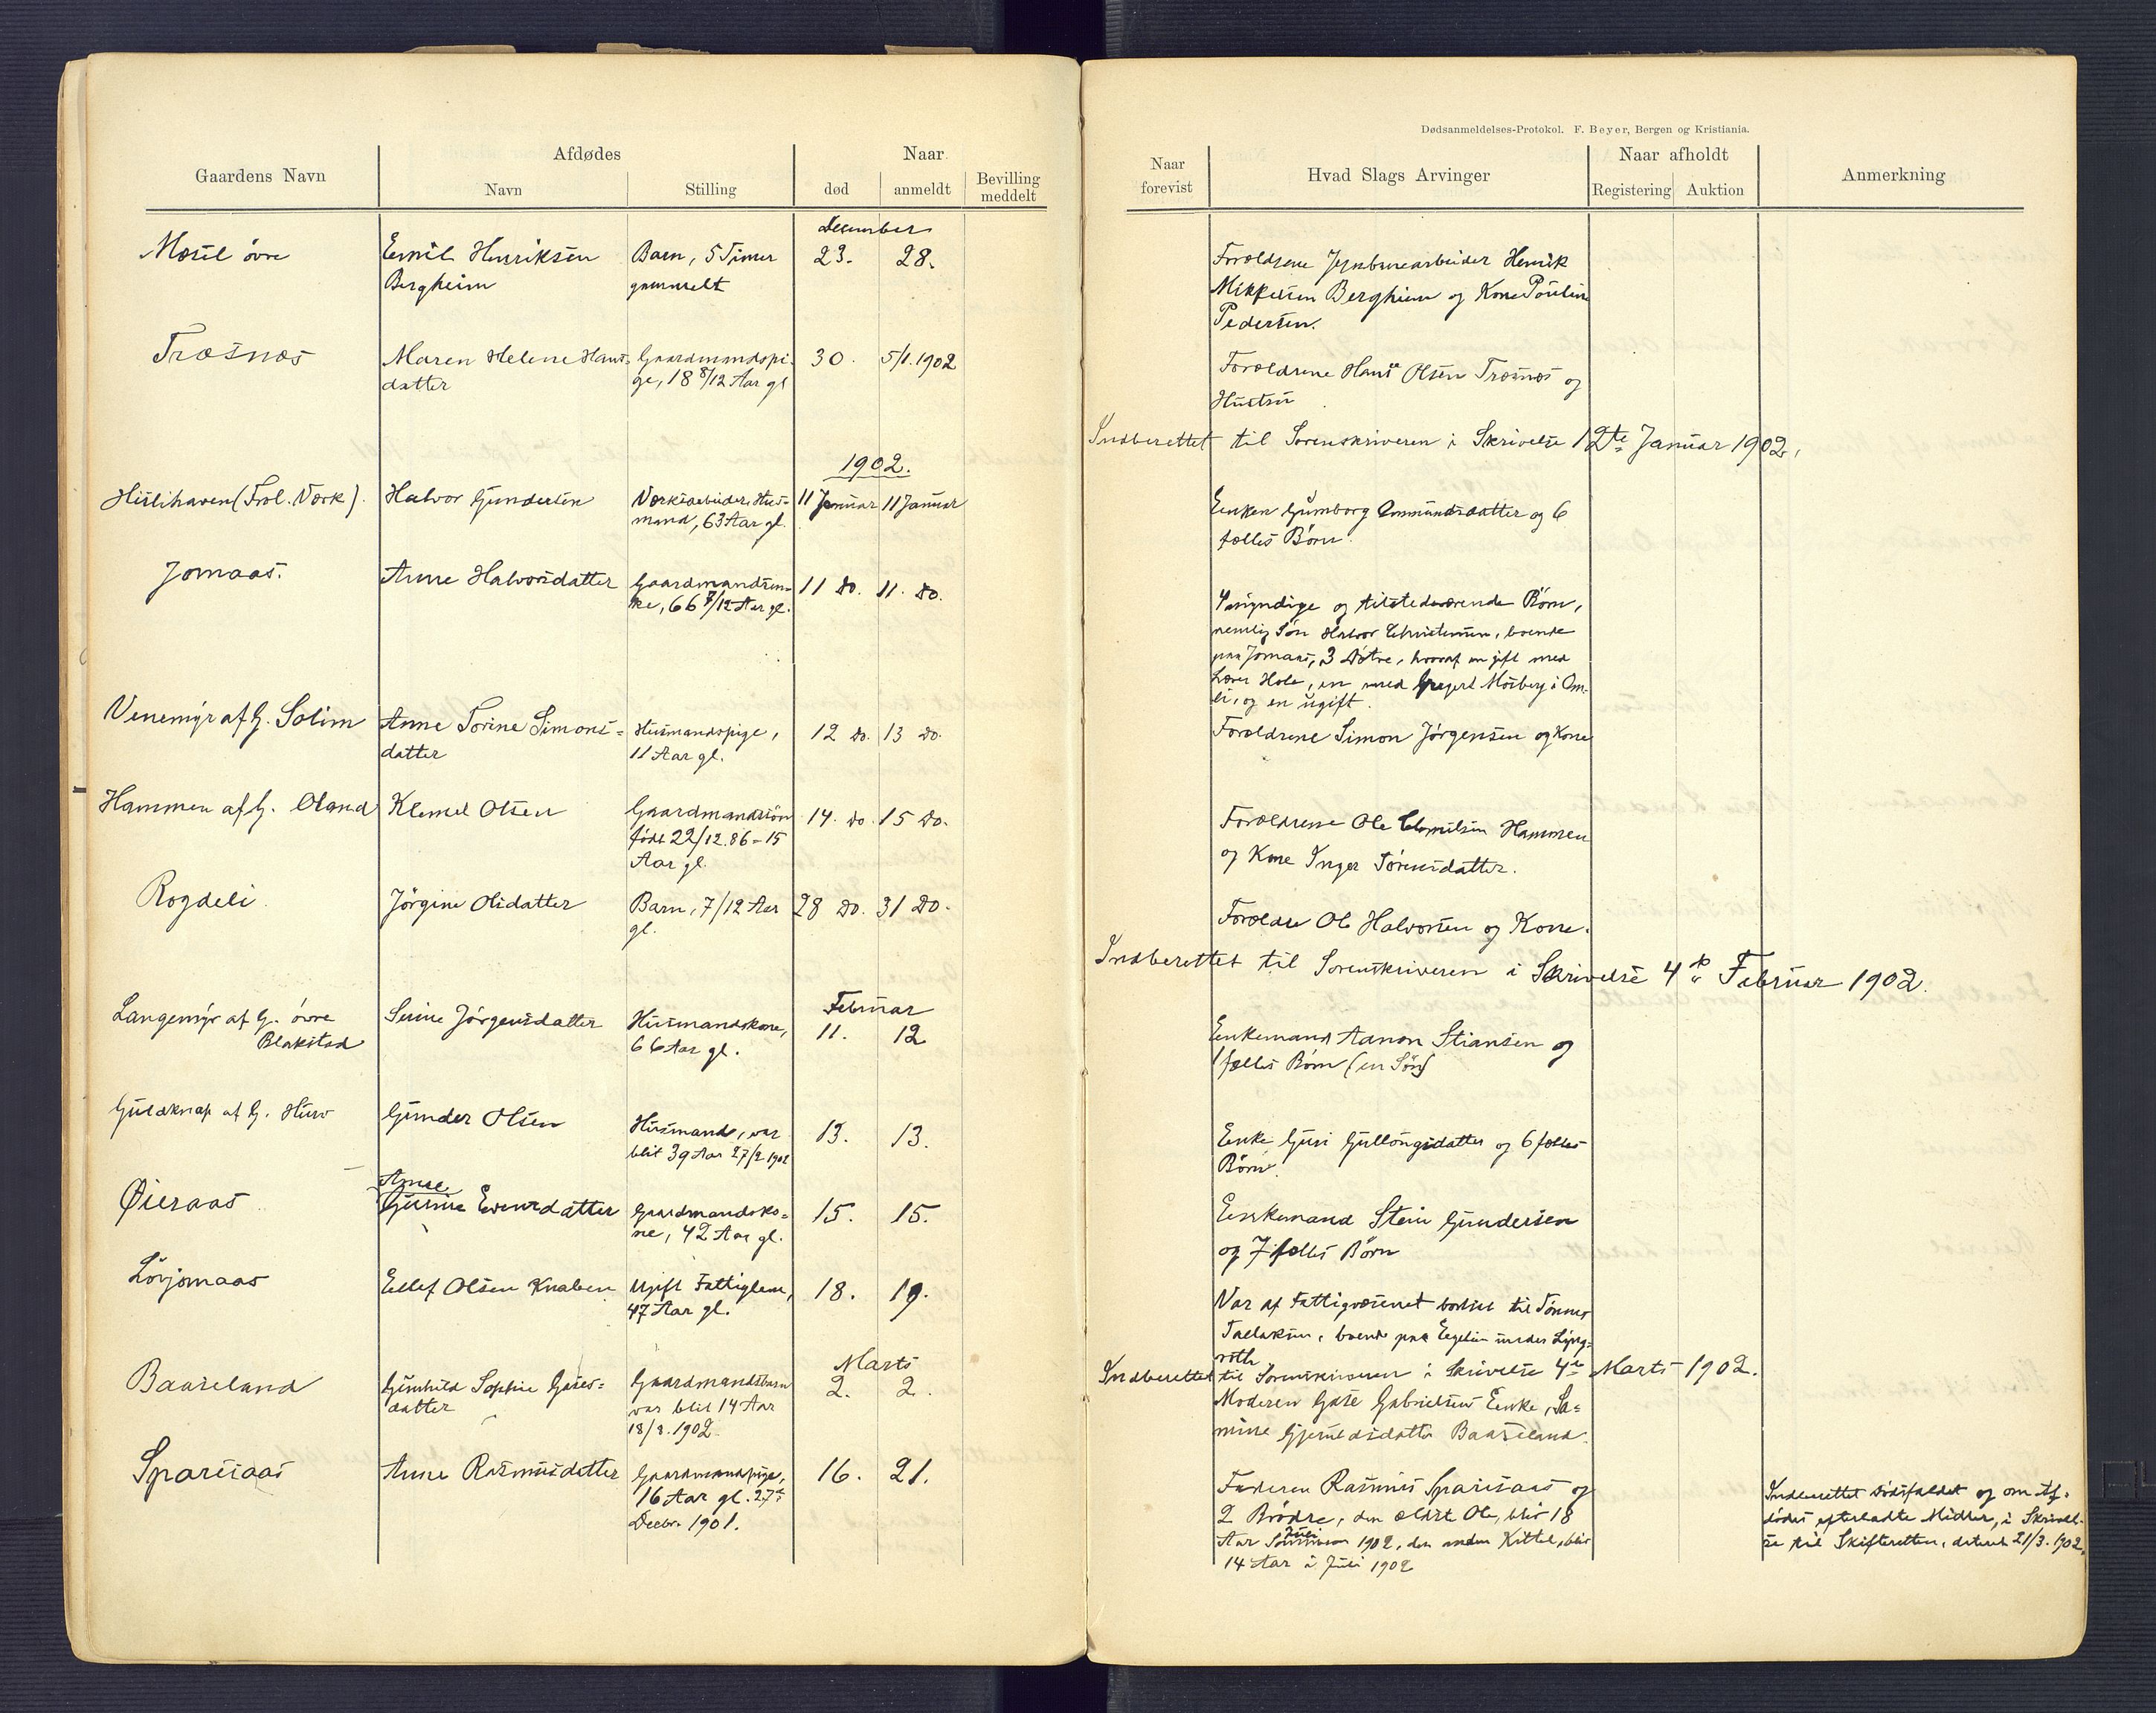 Dødsanmeldelses-Protokol. F. Beyer, Bergen og Kristiania.
Gaardens Navn
Afdødes
Navn
Stilling
Naar
død
anmeldt
Bevilling
meddelt
Naar
forevist
Hvad Slags Arvinger
Naar afholdt
Registering
Auktion
Anmerkning
December
Mæsel øvre
Emil Henriksen
Bergheim
Barn, 5 Timer
gammelt
23.
28.
Forældrene Jernbanearbeider Henrik
Mikkelsen Bergheim og Kone Pouline
Pedersen.
Træsnæs
Maren Helene Hans-
datter
Gaardmandspi-
ge, 18 8/12 Aar gl
30.
5/1.1902
Forældrene Hans Olsen Træsnæs og
Hustru
Indberettet til Sorenskriveren i Skrivelse 12te Januar 1902.
1902.
Hislihaven (Frol. Værk).
Halvor Gundersen
Værksarbeider, Hus-
mand, 63 Aar gl.
11 Januar
11 Januar
Enken Gumborg Ommundsdatter og 6
fælles Børn.
Jomaas.
Anne Halvorsdatter
Gaardmandsen-
ke, 66 7/12 Aar gl.
11 do.
11. do.
4 myndige og tilstedeværende Børn,
nemlig Søn Halvor Christensen, boende
paa Jomaas, 3 Døtre, hvoraf en gift med
Lærer Hole, en med Gregert Mosberg i Om-
li, og en ugift.
Venemyr af G. Solim
Anne Torine Simons-
datter
Husmandspige,
11 Aar gl.
12 do.
13 do.
Forældrene Simon Jørgensen og Kone
Hammen af G. Oland
Klemet Olsen
Gaardmandssøn
født 22/12.86 - 15
Aar gl.
14. do.
15 do.
Forældrene Ole Clemetsen Hammen
og Kone Inger Sørensdatter.
Rogdeli
Jørgine Olsdatter
Barn, 7/12 Aar
gl.
28 do.
31 do.
Forældre Ole Halvorsen og Kone.
Indberettet til Sorenskriveren i Skrivelse 4de Februar 1902.
Februar
Langemyr af G. øvre
Blakstad
Serine Jørgensdatter
Husmandskone,
66 Aar gl.
11.
12
Enkemand Aanon Stiansen og
1 fælles Børn (en Søn)
Guldknap af G. Hurv
Gunder Olsen
Husmand, var
blit 39 Aar 27/2 1902
13.
13.
Enke Guri Gullougsdatter og 6 fælles
Børn.
Øieraas
Anne
Gurine Evensdatter
Gaardmandsko-
ne, 42 Aar gl.
15.
15.
Enkemand Stein Gundersen
og 7 fælles Børn
Løvjomaas
Ellef Olsen Knaben
Ugift Fattiglem,
47 Aar gl.
18.
19.
Var af Fattigvæsenet bortsat til Tønnes
Tallaksen, boende paa Eegelien under Ljøng-
roth
Indberettet til Sorenskriveren i Skrivelse 4de Marts 1902.
Marts
Baaseland
Gunhild Sophie Gases-
datter
Gaardmandsbarn
var blit 14 Aar
18/8.1902
2.
2.
Moderen Gase Gabrielsens Enke, Sa-
mine Gjeruldsdatter Baaseland.
Sparsaas
Anne Rasmusdatter
Gaardmandspige,
16 Aar gl. 27de
Decbr. 1901.
16.
21.
Faderen Rasmus Sparsaas og
2 Brødre, den ældste Ole, blir 18
Aar Juli 1902, den anden Kittel, blir
14 Aar i Juli 1902
Indberettet dødsfaldet og om Af-
dødes efterladte Midler, i Skrivel-
se til Skifteretten, dateret 21/3. 1902.